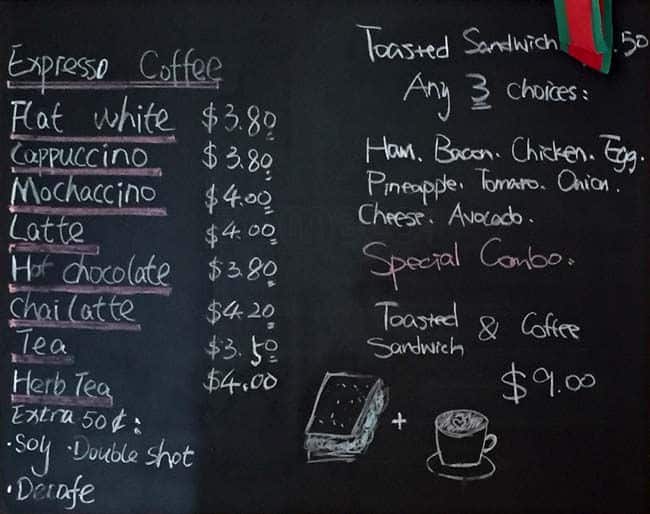 Expresso Coffee
Flat white $3.80
Cappuccino $3.80
Mochaccino $4.00
Latte $4.00
Hot chocolate $3.80
Chai latte $4.20
Tea $3.50
Herb Tea $4.00
Extra 50¢:
·Soy ·Double shot
·Decafe
Toasted Sandwich .50
Any 3 choices:
Ham. Bacon. Chicken. Egg.
Pineapple. Tomato. Onion.
Cheese. Avocado.
Special Combo:
Toasted & Coffee
Sandwich
$9.00
+